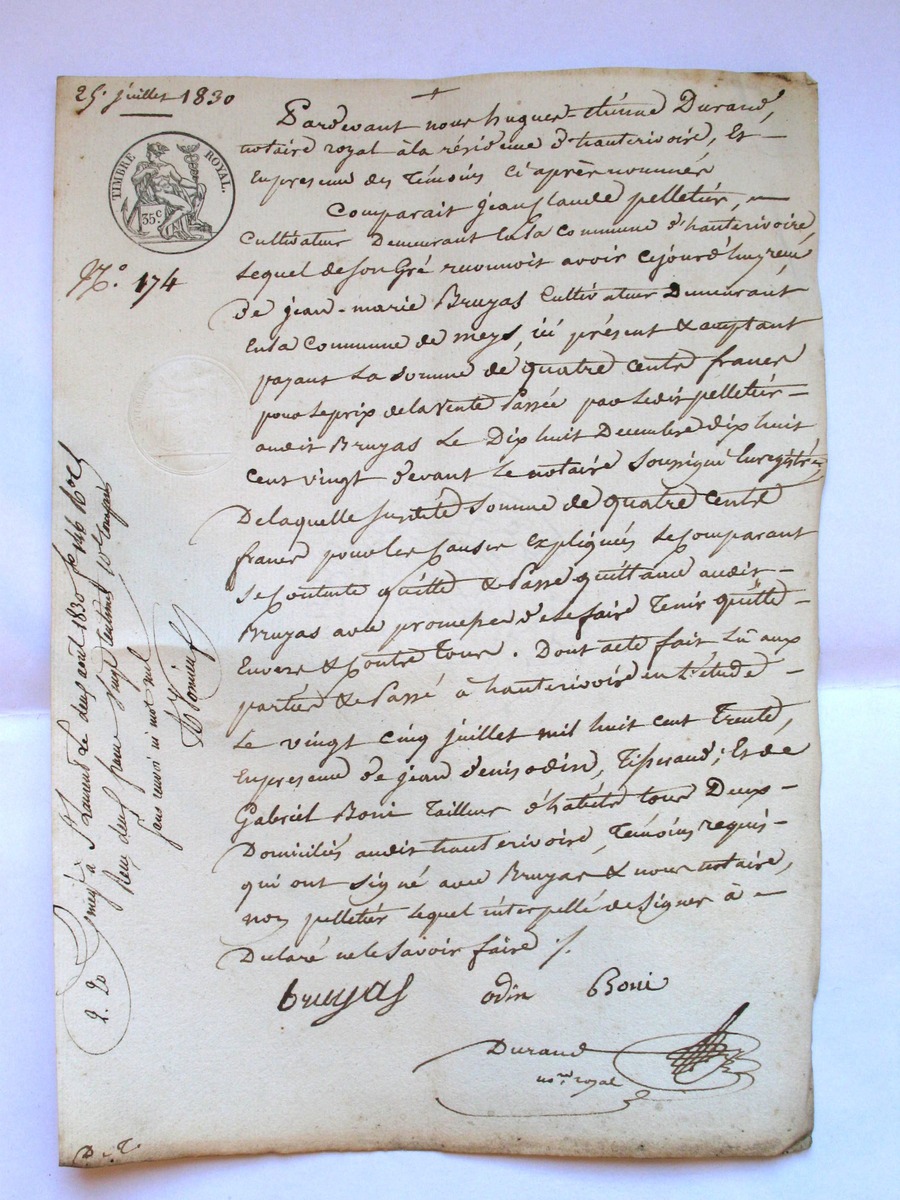 25 juillet 1830
TIMBRE ROYAL.
35 c
N.° 174
Pardevant nous hugues-étienne Durand,
notaire royal à la résidence d'hauterivoire, Et
En presence des Témoins ci après nommés
Comparait jean Claude pelletier,
Cultivateur Demeurant En la Commune d'hauterivoire,
Lequel de son Gré reconnoit avoir cejourd'huy reçu
De jean-marie Bruyas Cultivateur Demeurant
En la Commune de meys, ici présent & acceptant
payant La Somme de quatre cents francs
pour le prix de la vente Passée par ledit pelletier
audit Bruyas Le Dix huit Decembre dix huit
Cent vingt devant le notaire Soussigné Enregistré,
De laquelle susdite Somme de quatre cents
francs pour les Causes Expliqués le Comparant
se Contente quitte & Passe quittance audit
Bruyas avec promesse d'e le faire Tenir quitte
Envers & Contre Tous. Dont acte fait Lû aux
parties & Passé à hauterivoire en l'étude
Le vingt cinq juillet mil huit cent Trente,
En presence de jean denis odin, Tisserand; Et de
Gabriel Boni Tailleur d'habits tous Deux
Domiciliés audit hauterivoire, Temoins requis
qui ont signé avec Bruyas & nous notaire,
non pelletier Lequel interpellé de Signer à
Declaré ne le Savoir faire ./.
bruyas odin Boni
Durand
no.re royal
à St Laurent le deux août 1830 f° 146
Reçu deux francs vingt centimes
sans renvoi ni mot nul
2. 20
D. T.